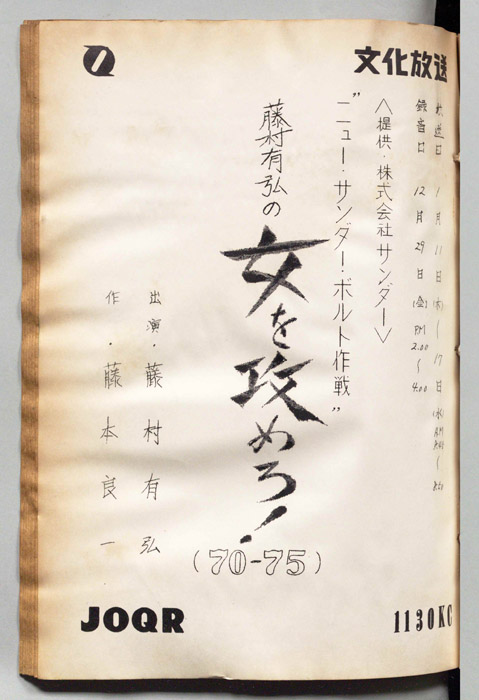 文化放送
放送日 1月11日(木)〜17日(水) AM
録音日 12月29日(金) PM 2.00〜4.00
〈提供・株式会社サンダー〉
"ニュー・サンダー・ボルト作戦"
藤村有弘の
女を攻めろ!
(70-75)
出演・藤村有弘
作・藤本良一
JOQR
1130KC